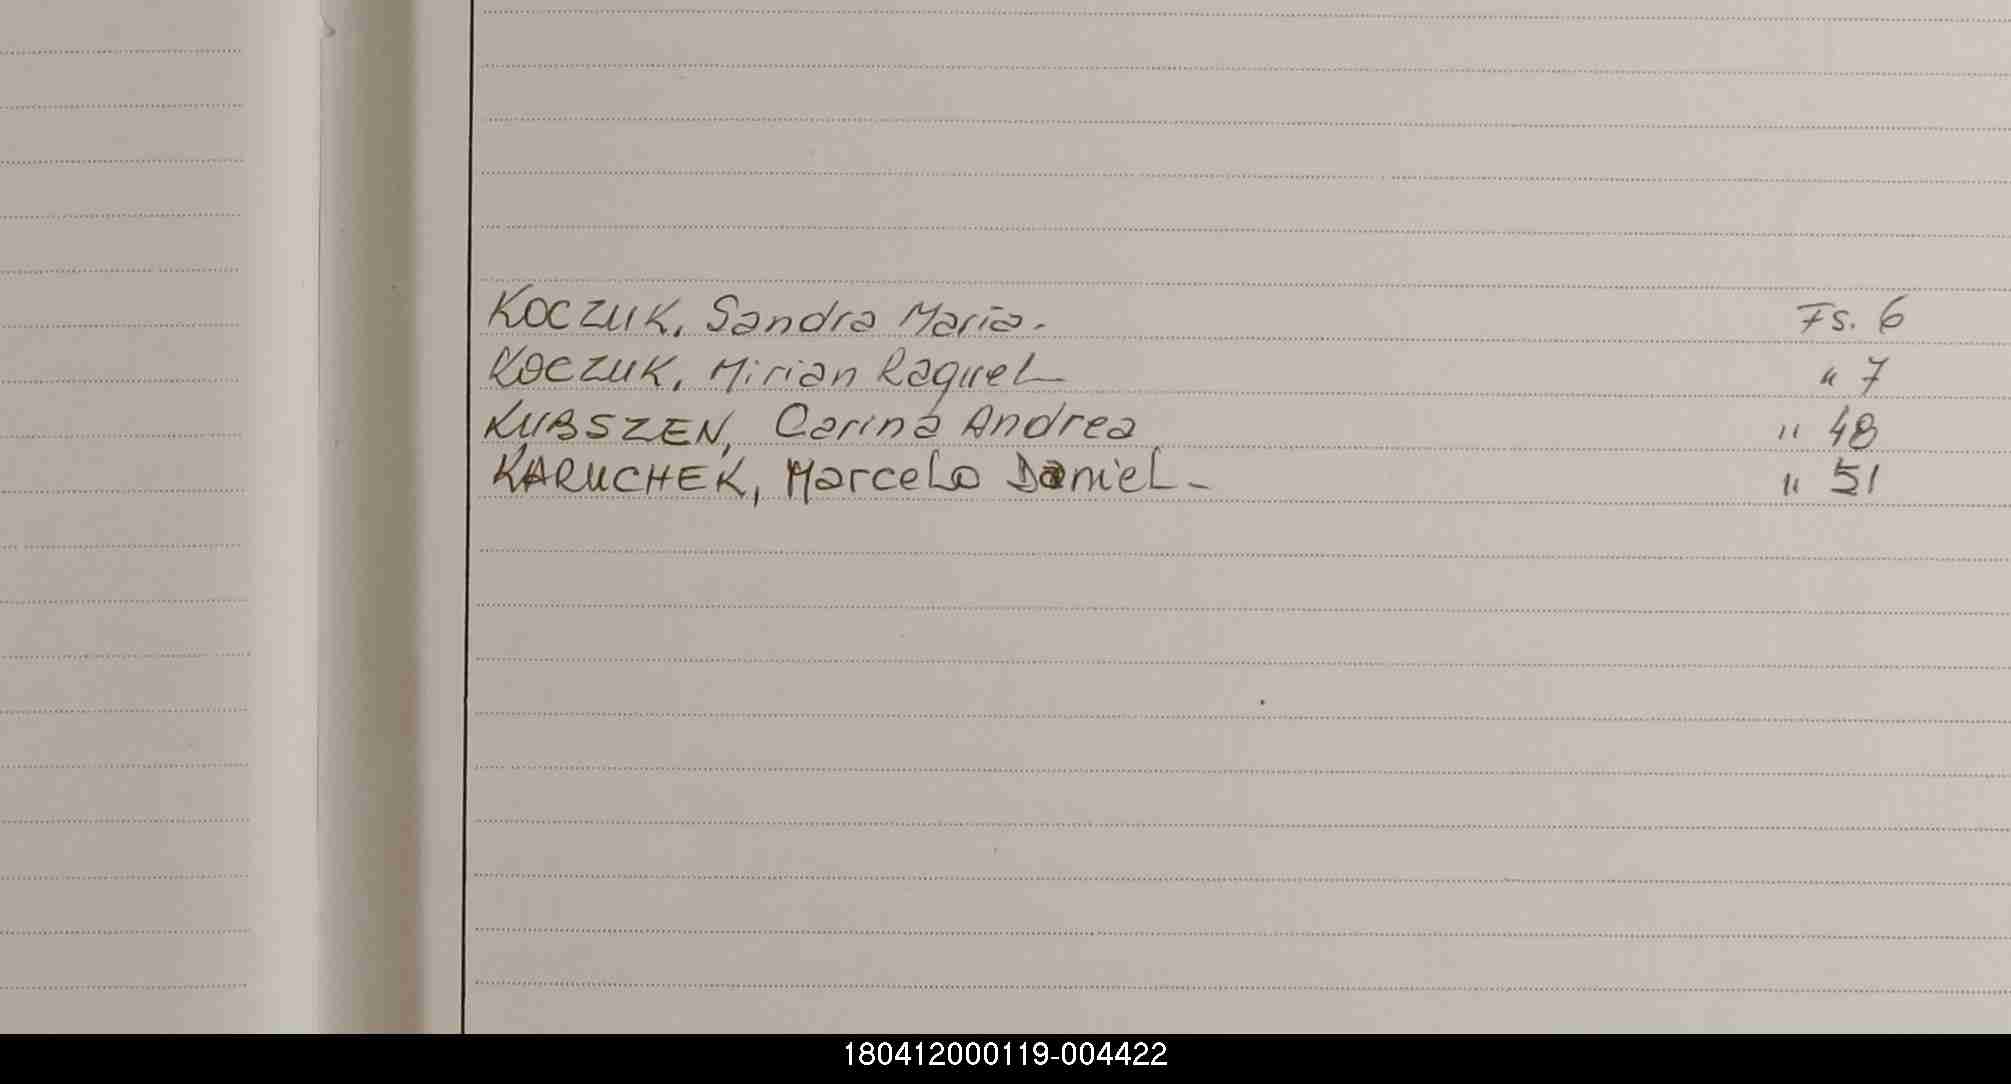 KOCZUK, Sandra Maria.- Fs. 6
KOCZUK, Mirian Raquel " 7
KUBSZEN, Carina Andrea " 48
KARUCHEK, Marcelo Daniel - " 51
180412000119-004422